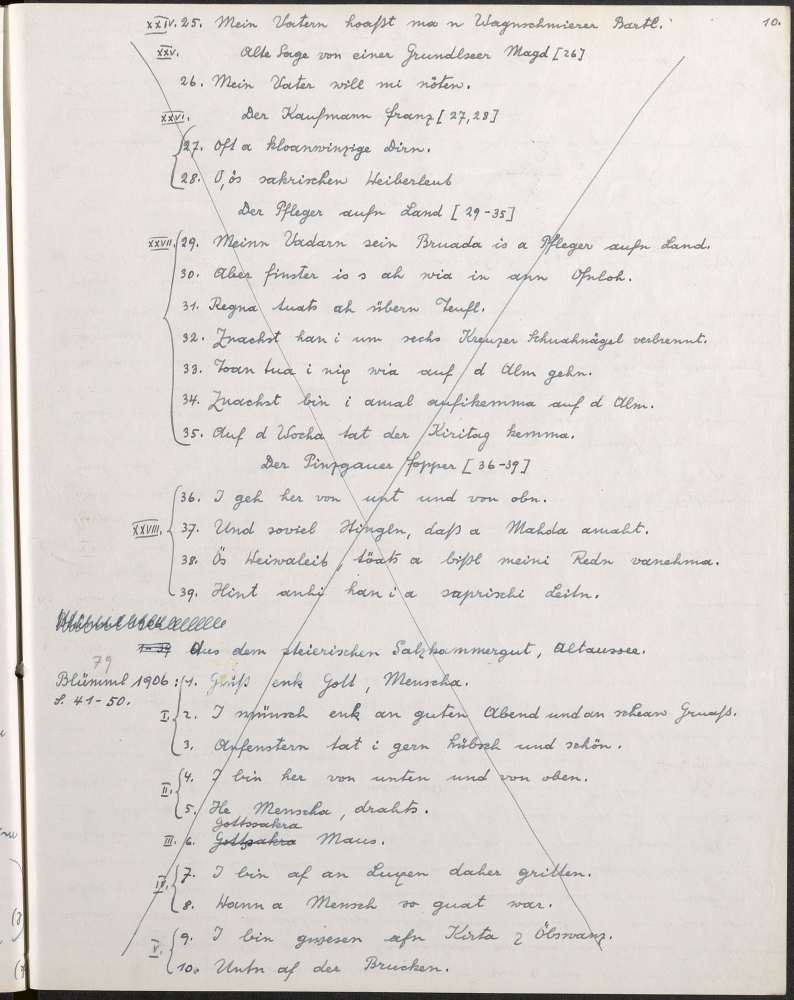 10.
XXIV. 25. Mein Vatern hoaßt ma n Wagnschmierer Bartl.
XXV. Alte Sage von einer Grundlseer Magd [26]
26. Mein Vater will mi nöten.
XXVI. Der Kaufmann Franz [27, 28]
27. Oft a kloanwinzige Dirn.
28. O, ös sakrischen Weiberleut
Der Pfleger aufn Land [29-35]
XXVII. 29. Meinn Vadarn sein Bruada is a Pfleger aufn Land.
30. Aber finster is s ah wia in ann Ofnloh.
31. Regna tuats ah übern Teufl.
32. Znachst han i um sechs Kreuzer Schuahnägel verbrennt.
33. Toan tua i nix wia auf d Alm gehn.
34. Znachst bin i amal aufikemma auf d Alm.
35. Auf d Wocha tat der Kiritag kemma.
Der Pinzgauer Fopper [36-39]
36. I geh her von unt und von obn.
XXVIII. 37. Und soviel Hingln, daß a Mahda amaht.
38. Ös Weiwaleit, töats a bißl meini Redn vanehma.
39. Hint auhi han i a saprischi Leitn.
1-39 Aus dem steierischen Salzkammergut, Altaussee.
79
Blümml 1906: 1. Grüß enk Gott, Menscha.
S. 41-50.
I. 2. I wünsch enk an guten Abend und an schean Gruaß.
3. Anfenstern tat i gern hübsch und schön.
4. I bin her von unten und von oben.
II. 5. He Menscha, drahts.
Gottssakra
III. 6. Gottsakra Maus.
IV. 7. I bin af an Luxen daher gritten.
8. Wann a Mensch so guat war.
V. 9. I bin gwesen afn Kirta z Öbswanz.
10. Untn af der Brucken.